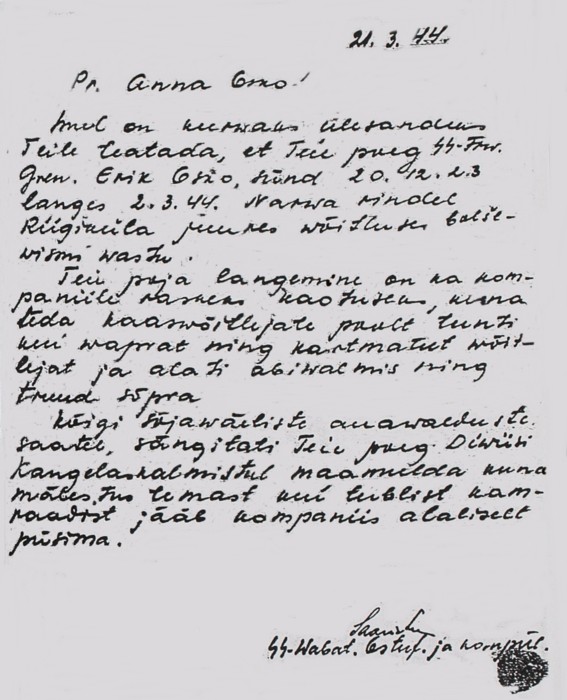 21. 3. 44.
Pr. Anna Osso!
Mul on kurwaks ülesandeks
Teile teatada, et Teie poeg SS-Frw.
Gren. Erik Osso, sünd 20.12.23
langes 2.3.44. Narwa rindel
Riigiküla juures wõitluses bolše-
wismi wastu.
Teie poja langemine on ka kom-
paniile raskeks kaotuseks, kuna
teda kaaswõitlejate poolt tunti
kui waprat ning kartmatut wõit-
lejat ja alati abiwalmis ning
truud sõpra
Kõigi sõjawäeliste auawalduste
saatel, sängitati Teie poeg Diwiisi
Kangelaskalmistul maamulda kuna
mälestus temast kui tublist kam-
raadist jääb kompaniis alaliselt
püsima.
SS-Wabat. Ostuf. ja kompül.